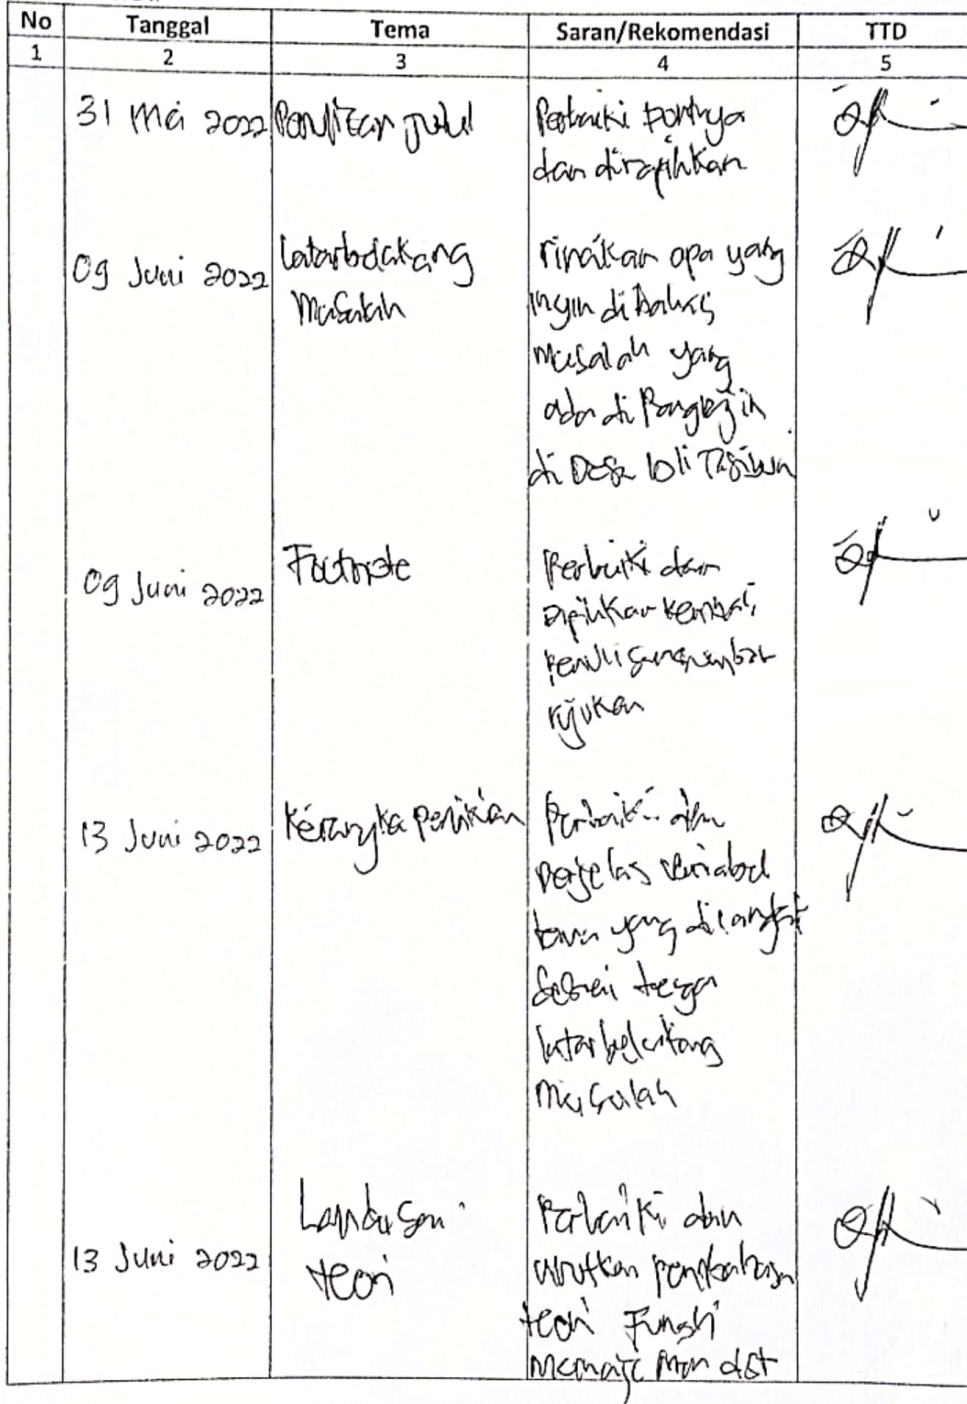 No Tanggal Tema Saran/Rekomendasi TTD
1 2 3 4 5
31 Mei 2022 Penulisan judul Perbaiki
dan dirapihkan
09 Juni 2022 latarbelakang
Masalah
apa yang
ingin di bahas
masalah yang
ada di
di Desa loli Tasiburi
09 Juni 2022 Footnote
Perbaiki dan
kembali
rujukan
13 Juni 2022 Kerangka pemikiran
Perbaiki dan
Perjelas variabel
yang diangkat
Sesuai
latarbelakang
Masalah
13 Juni 2022 Landasan
teori
Perbaiki dan
urutkan pembahasan
teori Fungsi
manajemen dst